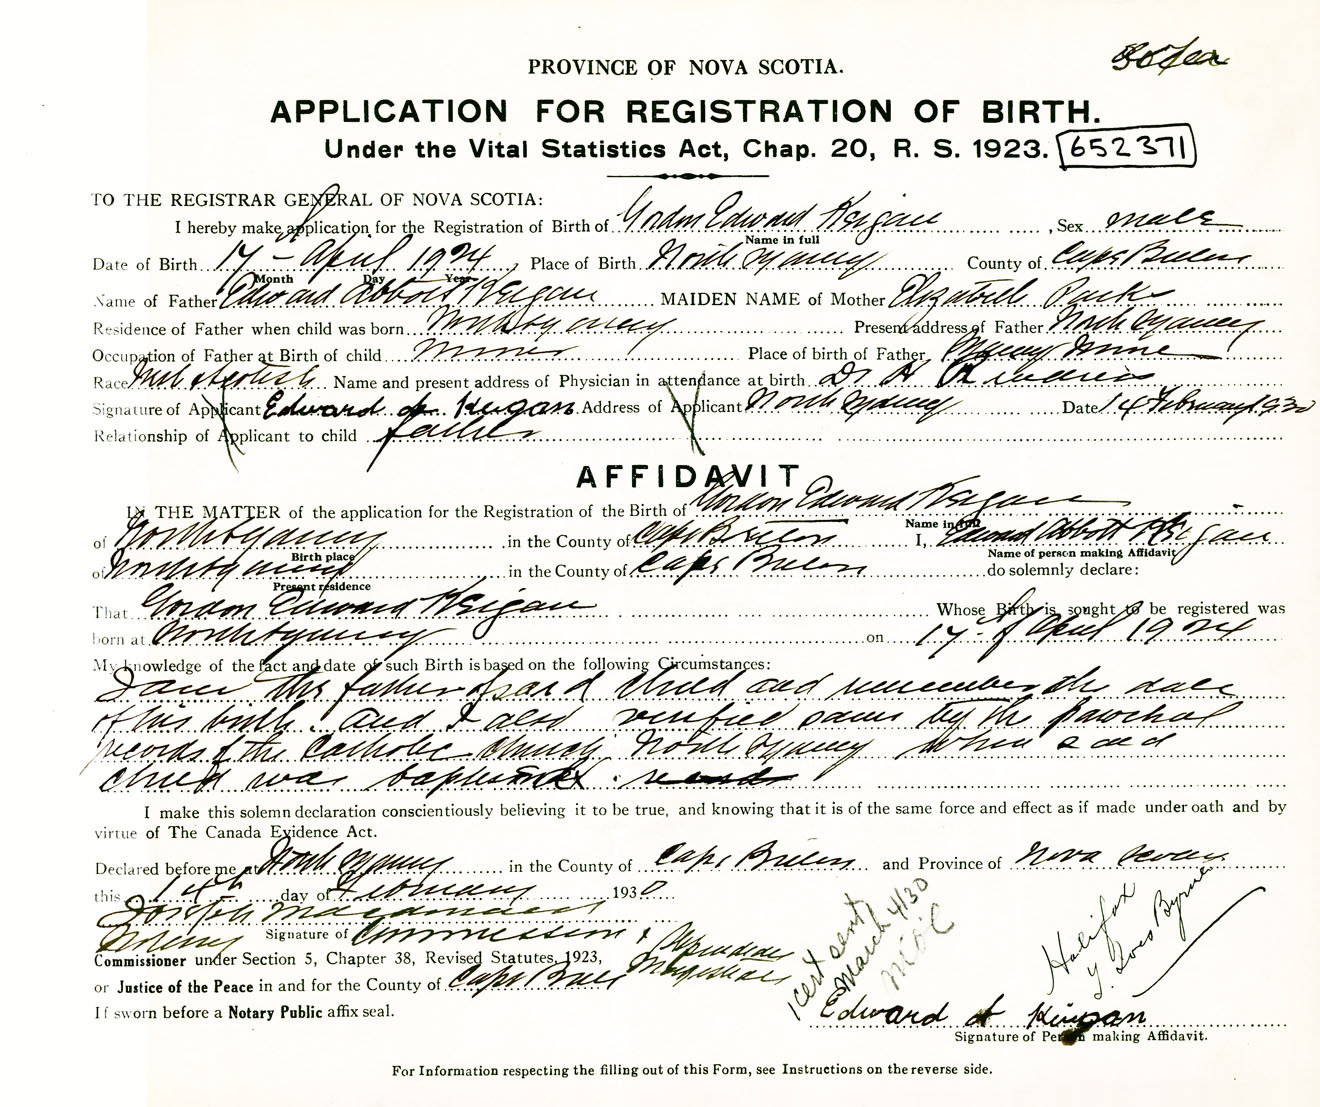 PROVINCE OF NOVA SCOTIA.
APPLICATION FOR REGISTRATION OF BIRTH.
Under the Vital Statistics Act, Chap. 20, R. S. 1923. 652371
TO THE REGISTRAR GENERAL OF NOVA SCOTIA:
I hereby make application for the Registration of Birth of Gordon Edward Keigan, Sex male
Name in full
Date of Birth 17 - April 1924, Place of Birth North Sydney County of Cape Breton
Month Day Year
Name of Father Edward Abbott Keigan MAIDEN NAME of Mother Elizabeth Parks
Residence of Father when child was born North Sydney Present address of Father North Sydney
Occupation of Father at Birth of child miner Place of birth of Father Sydney Mine
Race Name and present address of Physician in attendance at birth Dr A
Signature of Applicant Edward A Keigan Address of Applicant North Sydney Date 14 February 1930
Relationship of Applicant to child father
AFFIDAVIT
IN THE MATTER of the application for the Registration of the Birth of Gordon Edward Keigan
Name in full
of North Sydney in the County of Cape Breton I, Edward Abbott Keigan
Birth place Name of person making Affidavit
of North Sydney in the County of Cape Breton do solemnly declare:
Present residence
That Gordon Edward Keigan Whose Birth is sought to be registered was
born at North Sydney on 17 of April 1924
My knowledge of the fact and date of such Birth is based on the following Circumstances:
I am the father of said child and remember the date
of his birth. and I also verified same by the parochial
records of the Catholic church North Sydney when said
child was baptised.
I make this solemn declaration conscientiously believing it to be true, and knowing that it is of the same force and effect as if made under oath and by
virtue of The Canada Evidence Act.
Declared before me at North Sydney in the County of Cape Breton and Province of Nova Scotia
this 14th day of February 1930
Joseph
Signature of Commissioner & Stipendiary
Commissioner under Section 5, Chapter 38, Revised Statutes, 1923, Magistrate
or Justice of the Peace in and for the County of Cape Breton
If sworn before a Notary Public affix seal.
1 cert sent
March 4/30
Halifax
Edward A Keigan
Signature of Person making Affidavit.
For Information respecting the filling out of this Form, see Instructions on the reverse side.